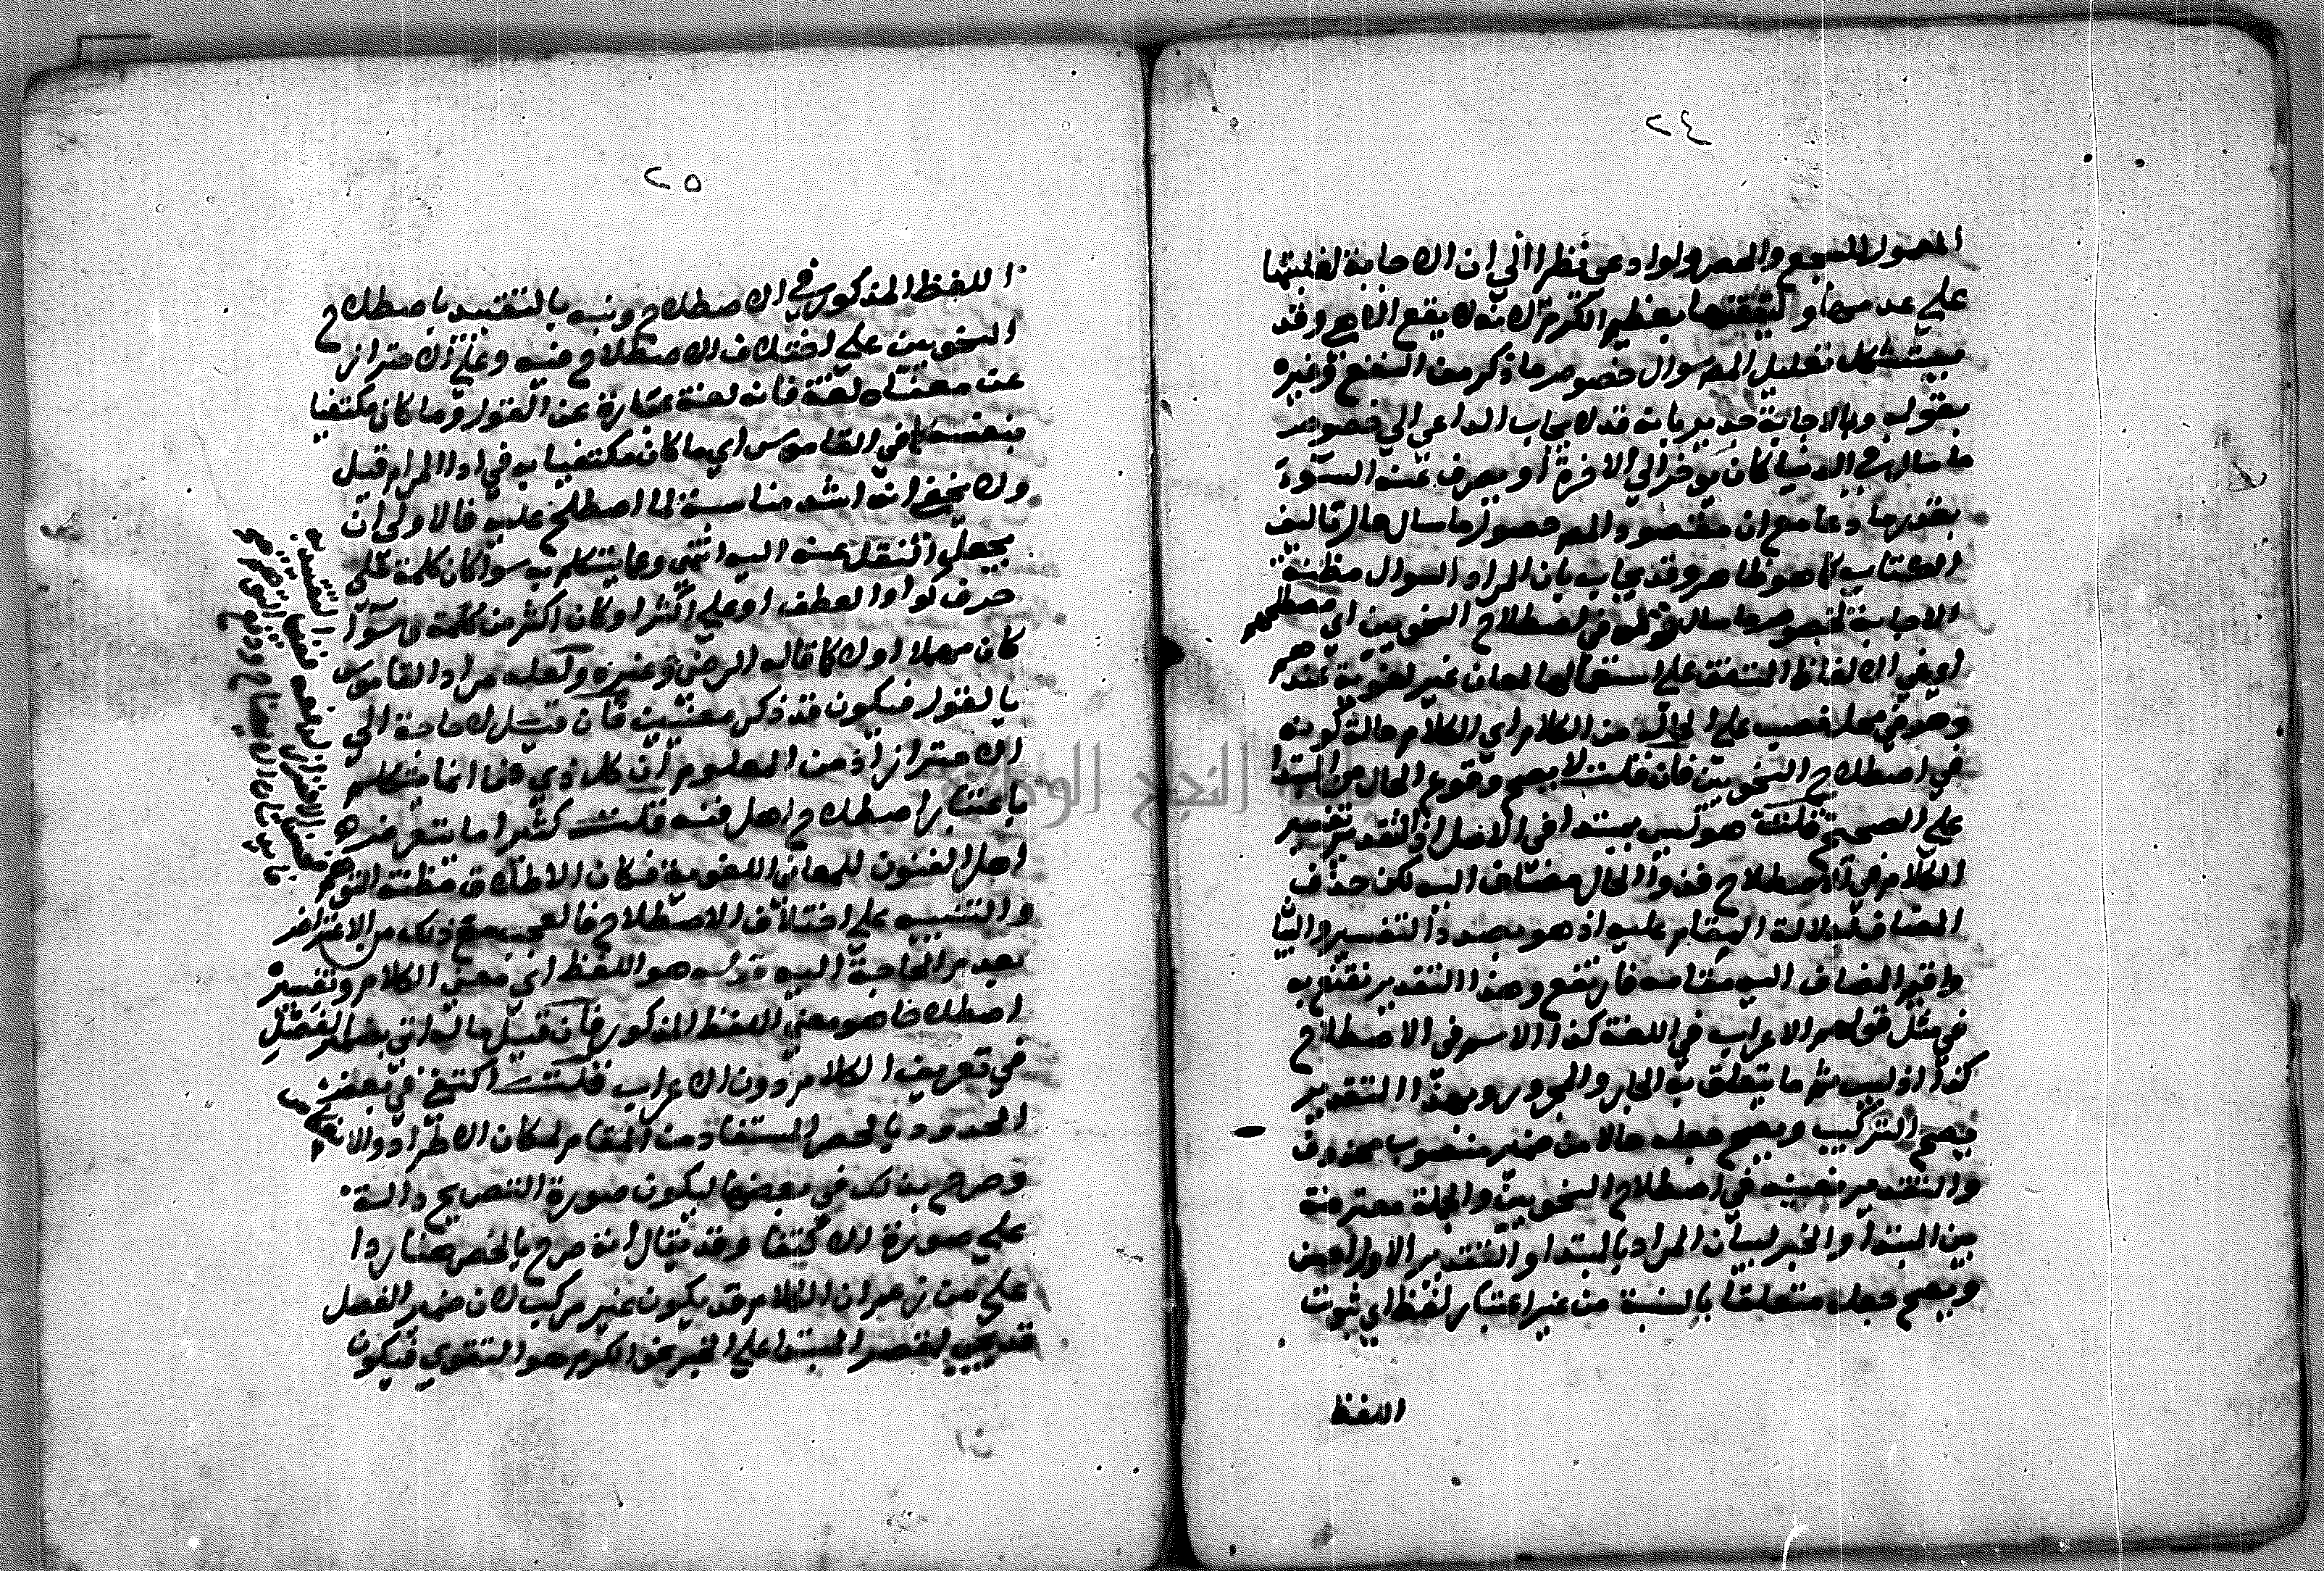 ٢٤
المسول للنفع والحصر ولو ادعى نظرا الى ان الاجابة لغلبتها
على عدمها او لتيقنها بعظيم الكرم لانه لا يقع الا هي وقد
يستشكل تعليل السوال خصوص ما ذكر من النفع وغيره
بقوله وبالاجابة جدير بانه قد لا يجاب الداعي الى خصوص
ما سال في الدنيا كان يوخر الى الاخرة او يصرف عنه السوء
بقدر ما دعا مع ان مقصود المص حصول ما سال حال تاليف
الكتاب كما هو ظاهر وقد يجاب بان المراد السوال مظنة
الاجابة لخصوص ما سال قوله في اصطلاح النحويين اي مصطلحهم
اي في الالفاظ المتفق على استعمالها لمعان غير لغوية عندهم
وهو في محل نصب على الحال من الكلام اي الكلام حالة كونه
في اصطلاح النحويين فان قلت لا يصح وقوع الحال من المبتدا
على الصحيح قلت هو ليس بمبتدا في الاصل اذ التقدير تفسير
الكلام في الاصطلاح فذو الحال مضاف اليه لكن حذف
المضاف لدلالة المقام عليه اذ هو بصدد التفسير والبيا
واقيم المضاف اليه مقامه فارتفع وهذا التقدير نقتنع به
في مثل قولهم الاعراب في اللغة كذا الاسم في الاصطلاح
كذا اذ ليس ثم ما يتعلق به الجار والمجرور وبهذا التقدير
يصح التركيب ويصح جعله حالا من ضمير منصوب محذوف
والتقدير نعنيه في اصطلاح النحويين والجملة معترضة
بين المبتدا والخبر لبيان المراد بالمبتدا والتقدير الاول احسن
ويصح جعله متعلقا بالنسبة من غير اعتبار لفظ اي ثبوت
اللفظ
٢٥
اللفظ المذكور في الاصطلاح ونبه بالتقييد باصطلاح
النحويين على اختلاف الاصطلاح فيه وعلى الاحتراز
عن معناه لغة فانه لغة عبارة عن القول وما كان مكتفيا
بنفسه كما في القاموس اي ما كان مكتفيا به في ادا المرام قيل
ولا يخفى انه اشد مناسبة لما اصطلح عليه فالاولى ان
يجعل النقل عنه اليه انتهى وعما يتكلم به سوا كان كلمة على
حرف كواو العطف او على اكثر او كان اكثر من كلمة وسوا
كان مهملا اولا كما قاله الرضي وغيره ولعله مراد القاموس
بالقول فيكون قد ذكر معنيين فان قيل لا حاجة الى
الاحتراز اذ من المعلوم ان كل ذي فن انما يتكلم
باعتبار اصطلاح اهل فنه قلت كثيرا ما يتعرض
اهل الفنون للمعاني اللغوية فكان الاطلاق مظنة التوهم
والتنبيه على اختلاف الاصطلاح فالعجب مع ذلك من الاعتراض
بعدم الحاجة اليه قوله هو اللفظ اي معنى الكلام وتفسيره
اصطلاحا هو معنى اللفظ المذكور فان قيل ما له اتى بضمير الفصل
في تعريف الكلام دون الاعراب قلت اكتفى في بعض
الحدود بالحصر المستفاد من المقام لمكان الاطراد والانعكاس
وصرح بذلك في بعضها ليكون صورة التصريح دالة
على صورة الاكتفا وقد يقال انه صرح بالحصر هنا ردا
على من زعم ان الكلام قد يكون غير مركب لان ضمير الفصل
قد يجيء لقصر المبتدا على الخبر نحو الكرم هو التقوى فيكون